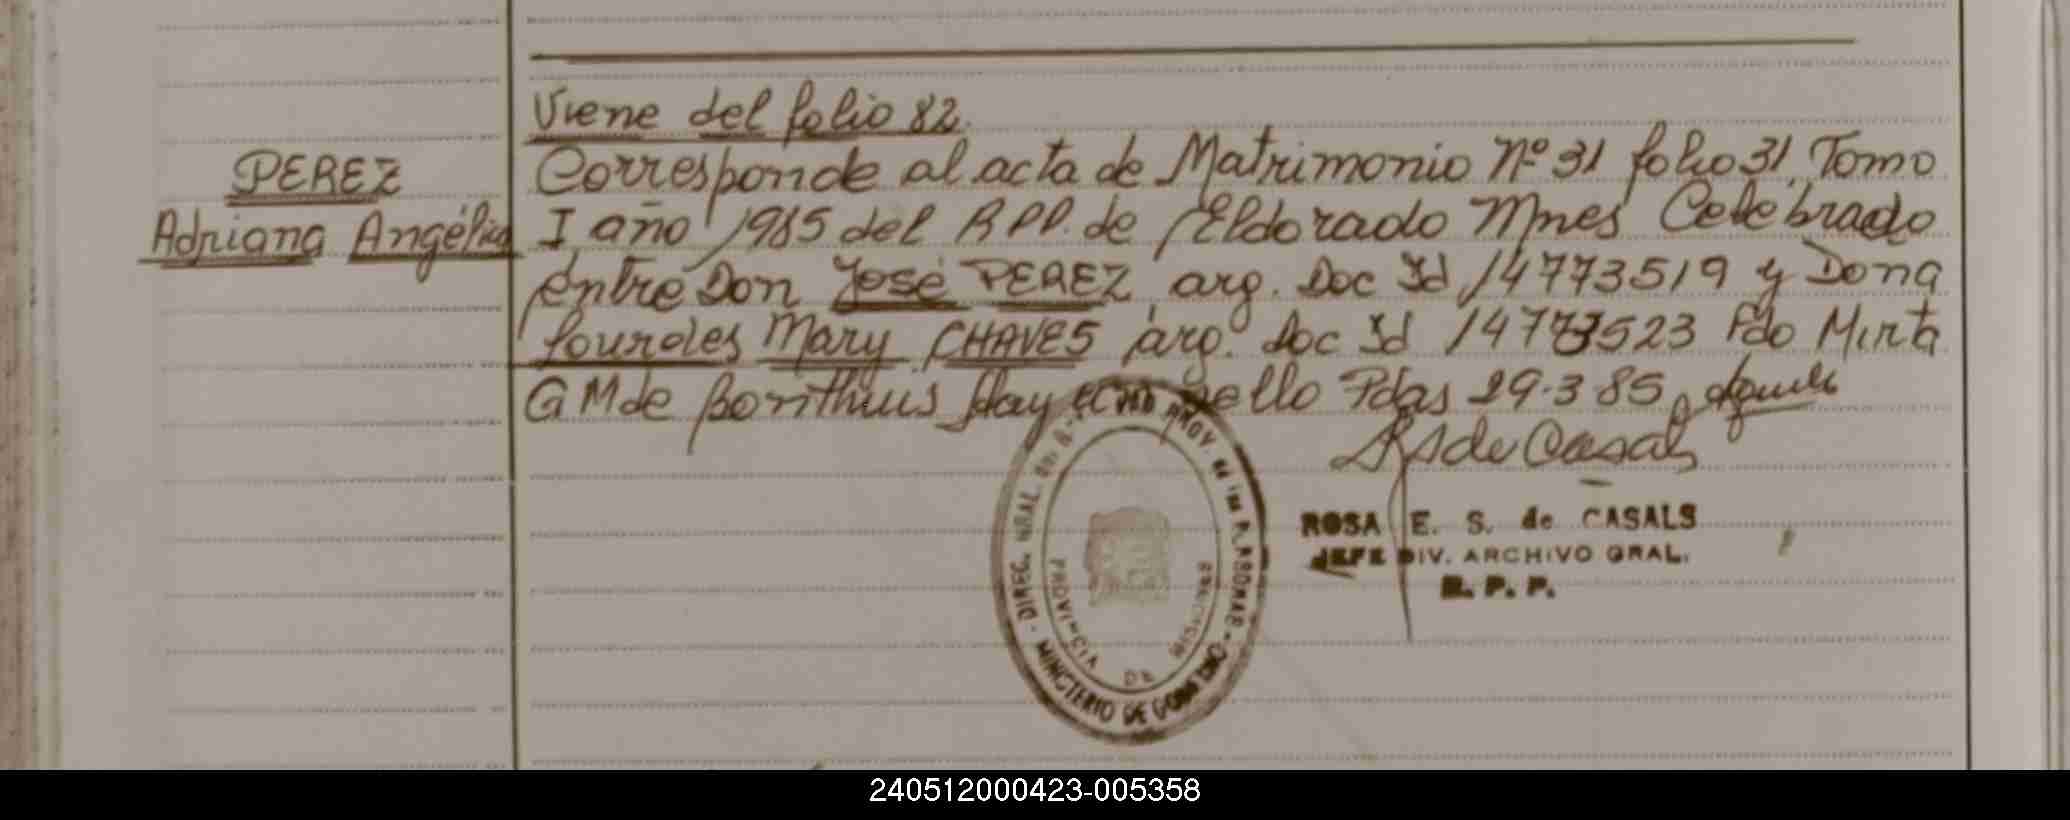 Viene del folio 82.
PEREZ
Adriana Angélica
Corresponde al acta de Matrimonio Nº 31 folio 31, Tomo
I año 1985 del R.P.P. de Eldorado Mnes Celebrado
entre Don José PEREZ, arg. Doc Id 14773519 y Dona
Lourdes Mary CHAVES arg. Doc Id 14773523 Fdo Mirta
G M de Bonthuis Hay un sello Pdas 29-3 85
RSde Casals
ROSA E. S. de CASALS
JEFE DIV. ARCHIVO GRAL.
R. P. P.
DIREC. GRAL. DEL R. PROV. de las PERSONAS - MINISTERIO DE GOBIERNO -
PROVINCIA DE MISIONES
240512000423-005358